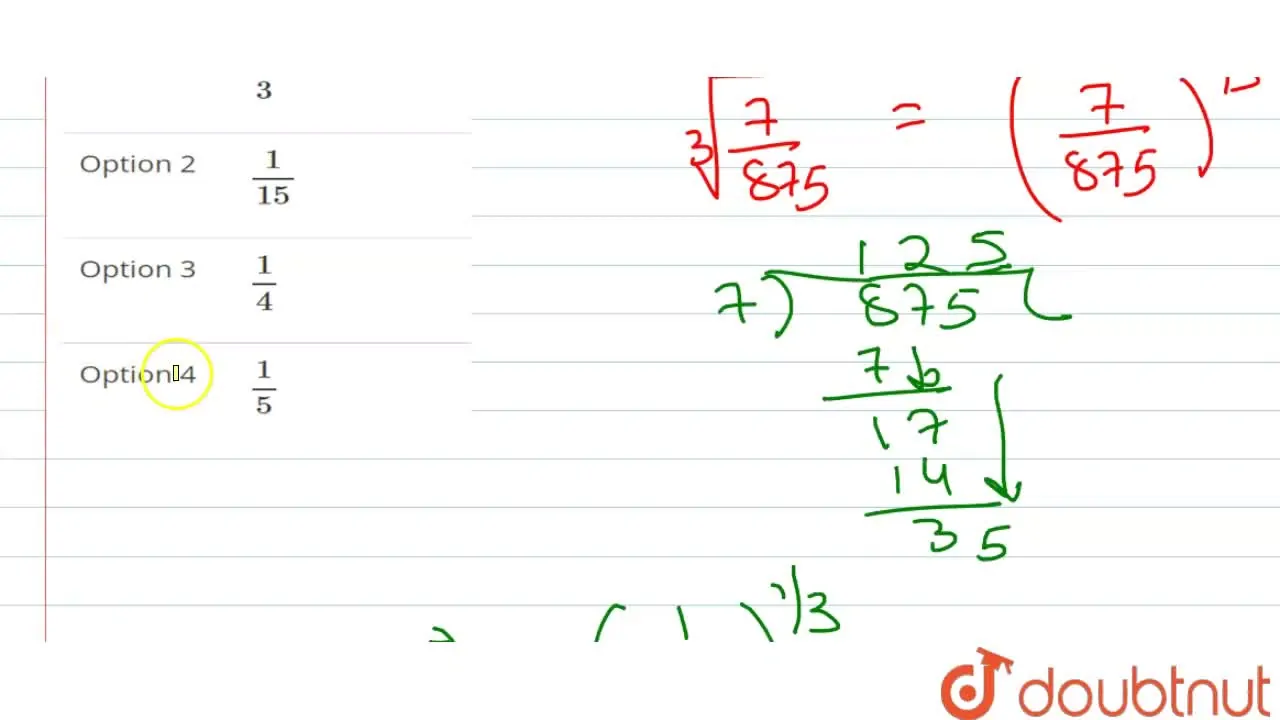 3
Option 2 1/15
Option 3 1/4
Option 4 1/5
∛(7/875) = (7/875)
125
7) 875 (
7
17
14
35
1/3
doubtnut